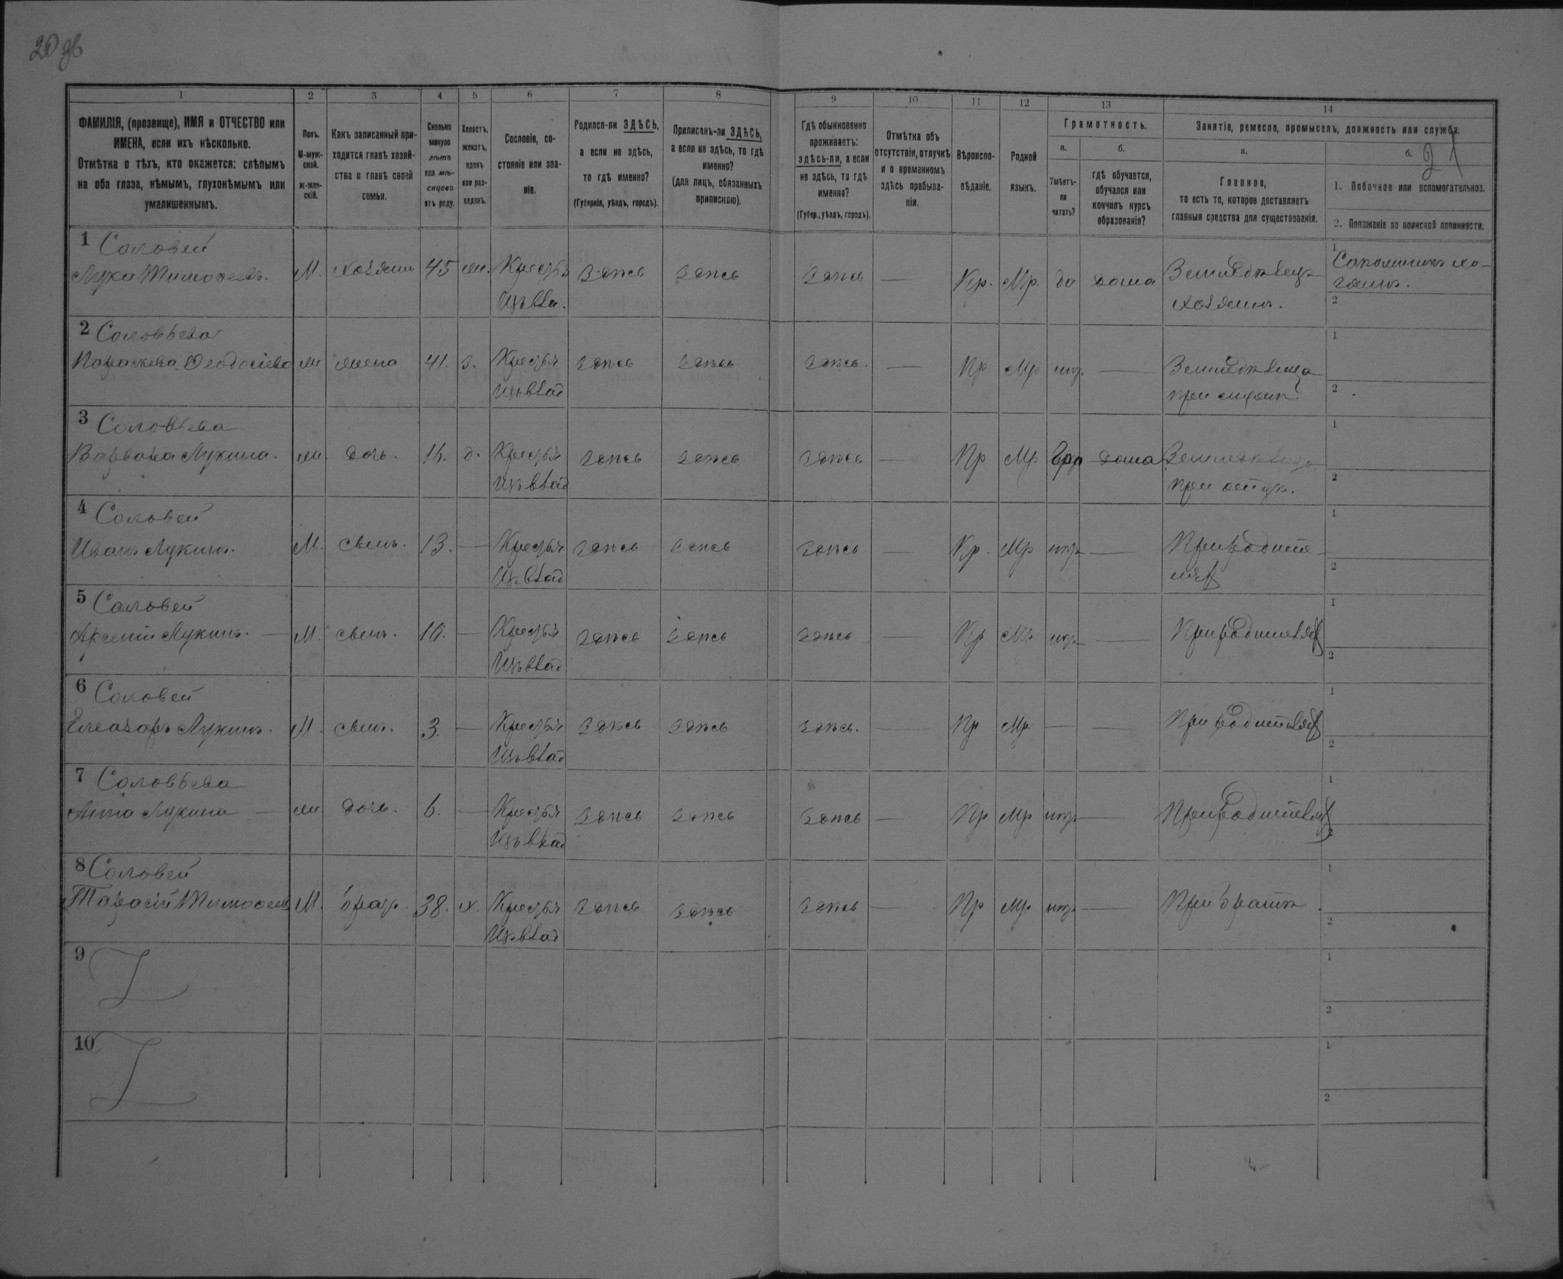 20
21
1
2
3
4
5
6
7
8
9
10
11
12
13
14
ФАМИЛІЯ, (прозвище), ИМЯ и ОТЧЕСТВО или
ИМЕНА, если ихъ нѣсколько.
Отмѣтка о тѣхъ, кто окажется: слѣпымъ
на оба глаза, нѣмымъ, глухонѣмымъ или
умалишеннымъ.
Полъ.
М-муж-
ской.
ж-жен-
скій.
Какъ записанный при-
ходится главѣ хозяй-
ства и главѣ своей
семьи.
Сколько
минуло
лѣтъ
или мѣ-
сяцевъ
отъ роду.
Холостъ,
женатъ,
вдовъ
или раз-
веденъ.
Сословіе, со-
стояніе или зва-
ніе.
Родился-ли ЗДѢСЬ,
а если не здѣсь,
то гдѣ именно?
(Губернія, уѣздъ, городъ).
Приписанъ-ли ЗДѢСЬ,
а если не здѣсь, то гдѣ
именно?
(для лицъ, обязанныхъ
припискою).
Гдѣ обыкновенно
проживаетъ:
здѣсь-ли, а если
не здѣсь, то гдѣ
именно?
(Губер., уѣздъ, городъ).
Отмѣтка объ
отсутствіи, отлучкѣ
и о временномъ
здѣсь пребыва-
ніи.
Вѣроиспо-
вѣданіе.
Родной
языкъ.
Грамотность.
а.
Умѣетъ-
ли
читать?
б.
гдѣ обучается,
обучался или
кончилъ курсъ
образованія?
Занятіе, ремесло, промыселъ, должность или служба.
а.
Главное,
то есть то, которое доставляетъ
главныя средства для существованія.
б.
1. Побочное или вспомогательное.
2. Положеніе по воинской повинности.
1 Соловей
Лука Тимофеевъ. М. хозяинъ 45 Крестья здесь здесь здесь — Пр. Мр. да дома
хозяинъ.
1
2
2 Соловьева
Параскева Феодосіева жена 41. з. Крестья здесь здесь здесь. — Пр Мр нѣтъ —
при мужѣ.
1
2
3 Соловьева
Варвара Лукина. дочь. д. Крестья здесь здесь здесь — Пр Мр дома
при отцѣ.
1
2
4 Соловей
Иванъ Лукинъ. М. сынъ. 13. — Крестья здесь здесь здесь — Пр. Мр нѣтъ —
1
2
5 Соловей
Арсеній Лукинъ. — М. сынъ. 10. — Крестья здесь здесь здесь — Пр Мр нѣтъ — При родителяхъ
1
2
6 Соловей
Елеазаръ Лукинъ. М. сынъ. 3. — Крестья здесь здесь здесь. — Пр Мр — — При родителяхъ
1
2
7 Соловьева
Анна Лукина — дочь. 6. — Крестья здесь здесь здесь — Пр Мр нѣтъ — При родителяхъ
1
8 Соловей
Тарасій Тимофеев М. братъ. 38. х. Крестья здесь здесь здесь — Пр Мр нѣтъ — При братѣ.
1
2
9
1
2
10
1
2